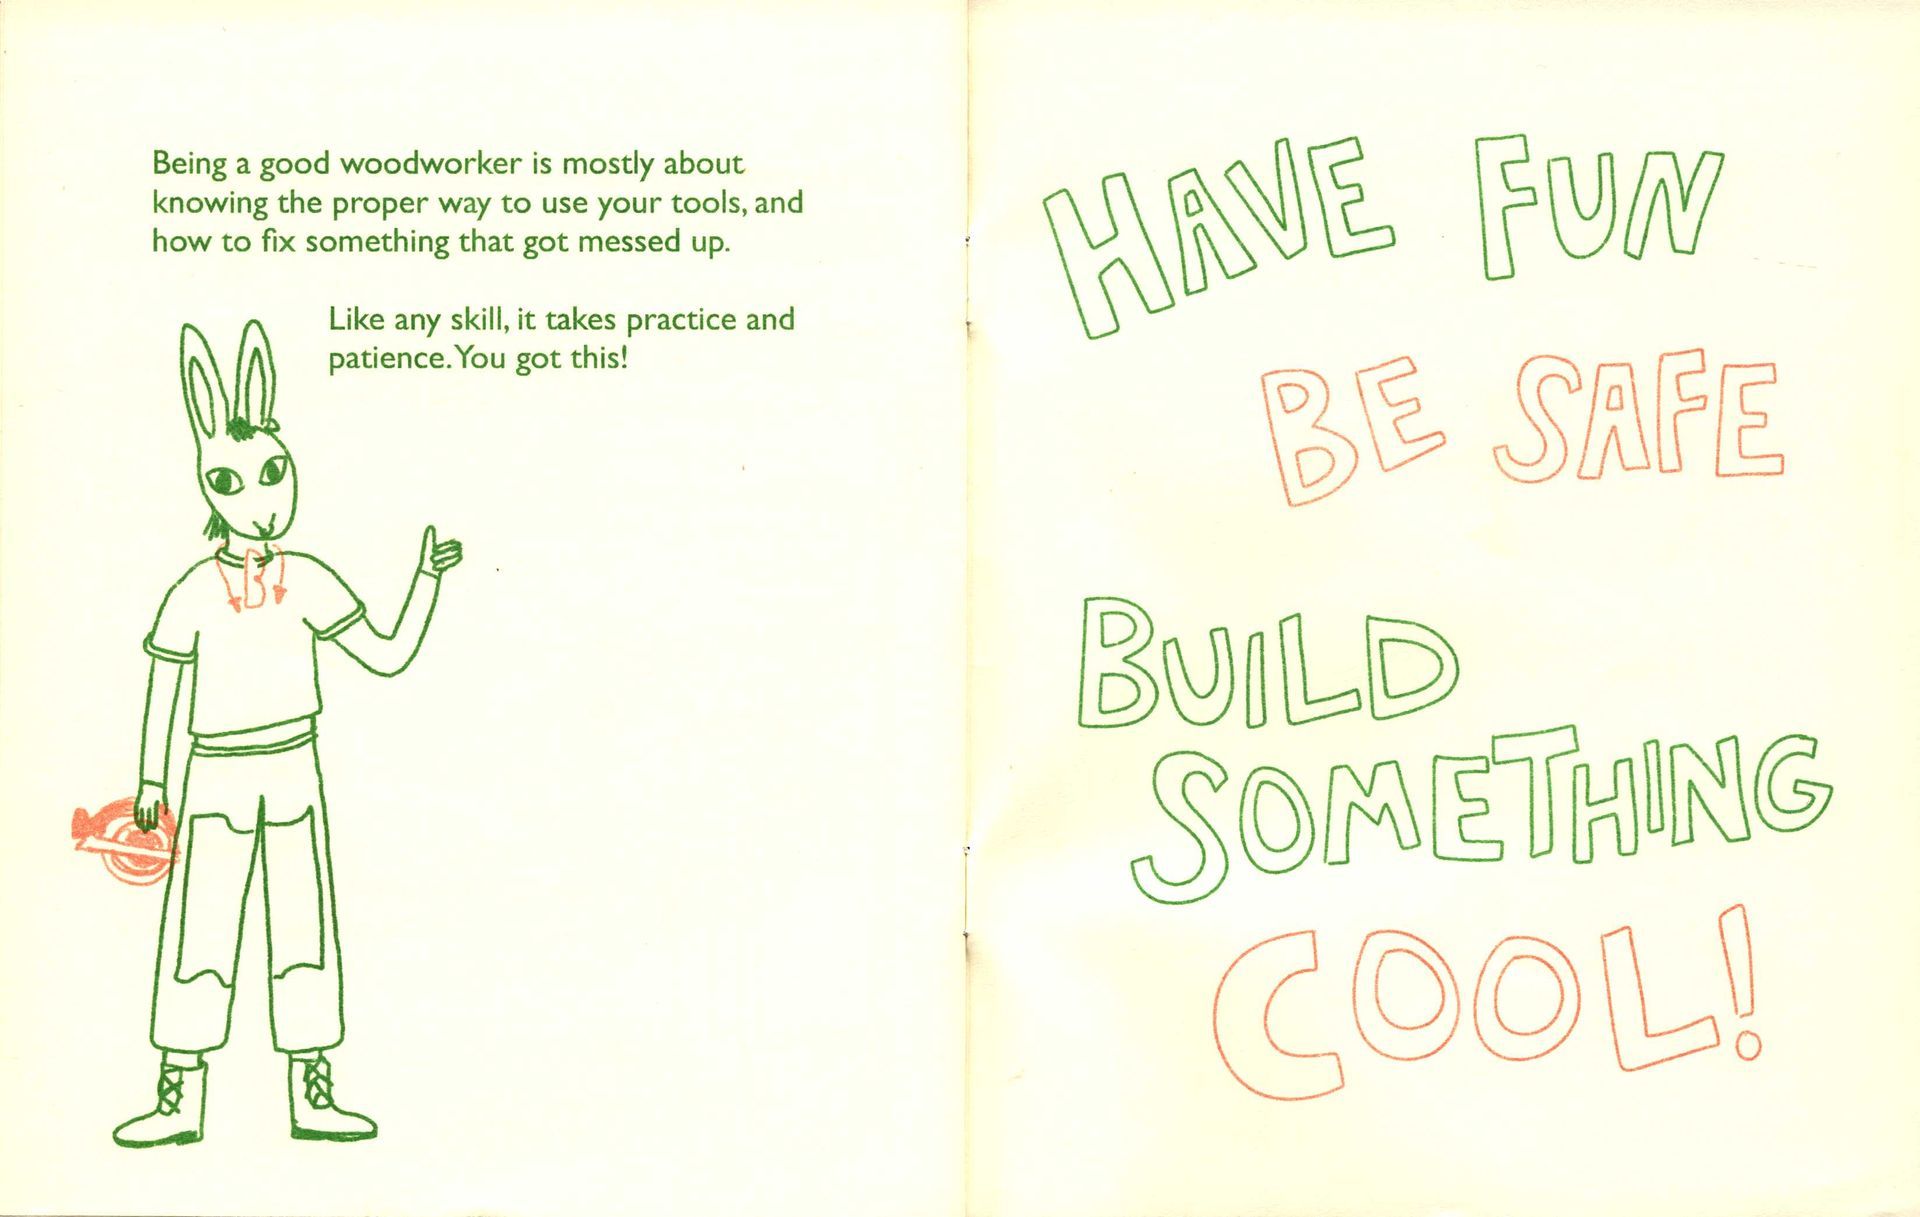 Being a good woodworker is mostly about
knowing the proper way to use your tools, and
how to fix something that got messed up.
Like any skill, it takes practice and
patience. You got this!
B
HAVE FUN
BE SAFE
BUILD
SOMETHING
COOL!